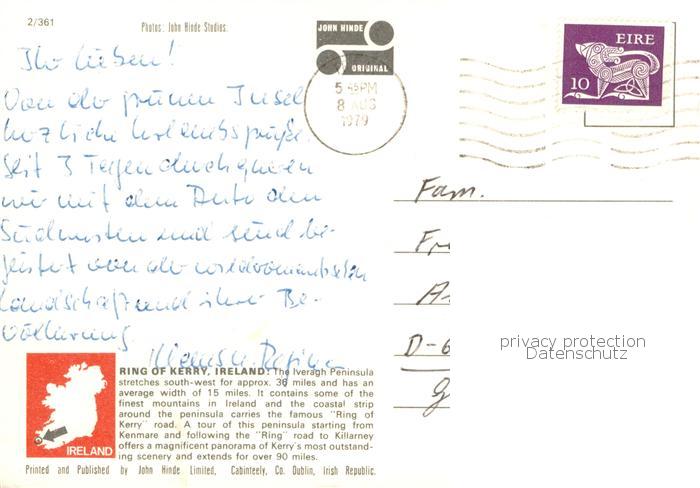 2/361
Photos: John Hinde Studios.
JOHN HINDE
ORIGINAL
5 45PM
8 AUG
1979
EIRE
10
Ihr Lieben!
Von der grünen Insel
herzliche Urlaubsgrüße.
Seit 3 Tagen durchqueren
wir mit dem Auto den
Südwesten und sind be-
geistert von der wildromantischen
Landschaft und ihrer Be-
völkerung.
Klaus u. Regina
Fam.
D-6
privacy protection
Datenschutz
RING OF KERRY, IRELAND: The Iveragh Peninsula
stretches south-west for approx. 36 miles and has an
average width of 15 miles. It contains some of the
finest mountains in Ireland and the coastal strip
around the peninsula carries the famous "Ring of
Kerry" road. A tour of this peninsula starting from
Kenmare and following the "Ring" road to Killarney
offers a magnificent panorama of Kerry's most outstand-
ing scenery and extends for over 90 miles.
IRELAND
Printed and Published by John Hinde Limited, Cabinteely, Co. Dublin, Irish Republic.